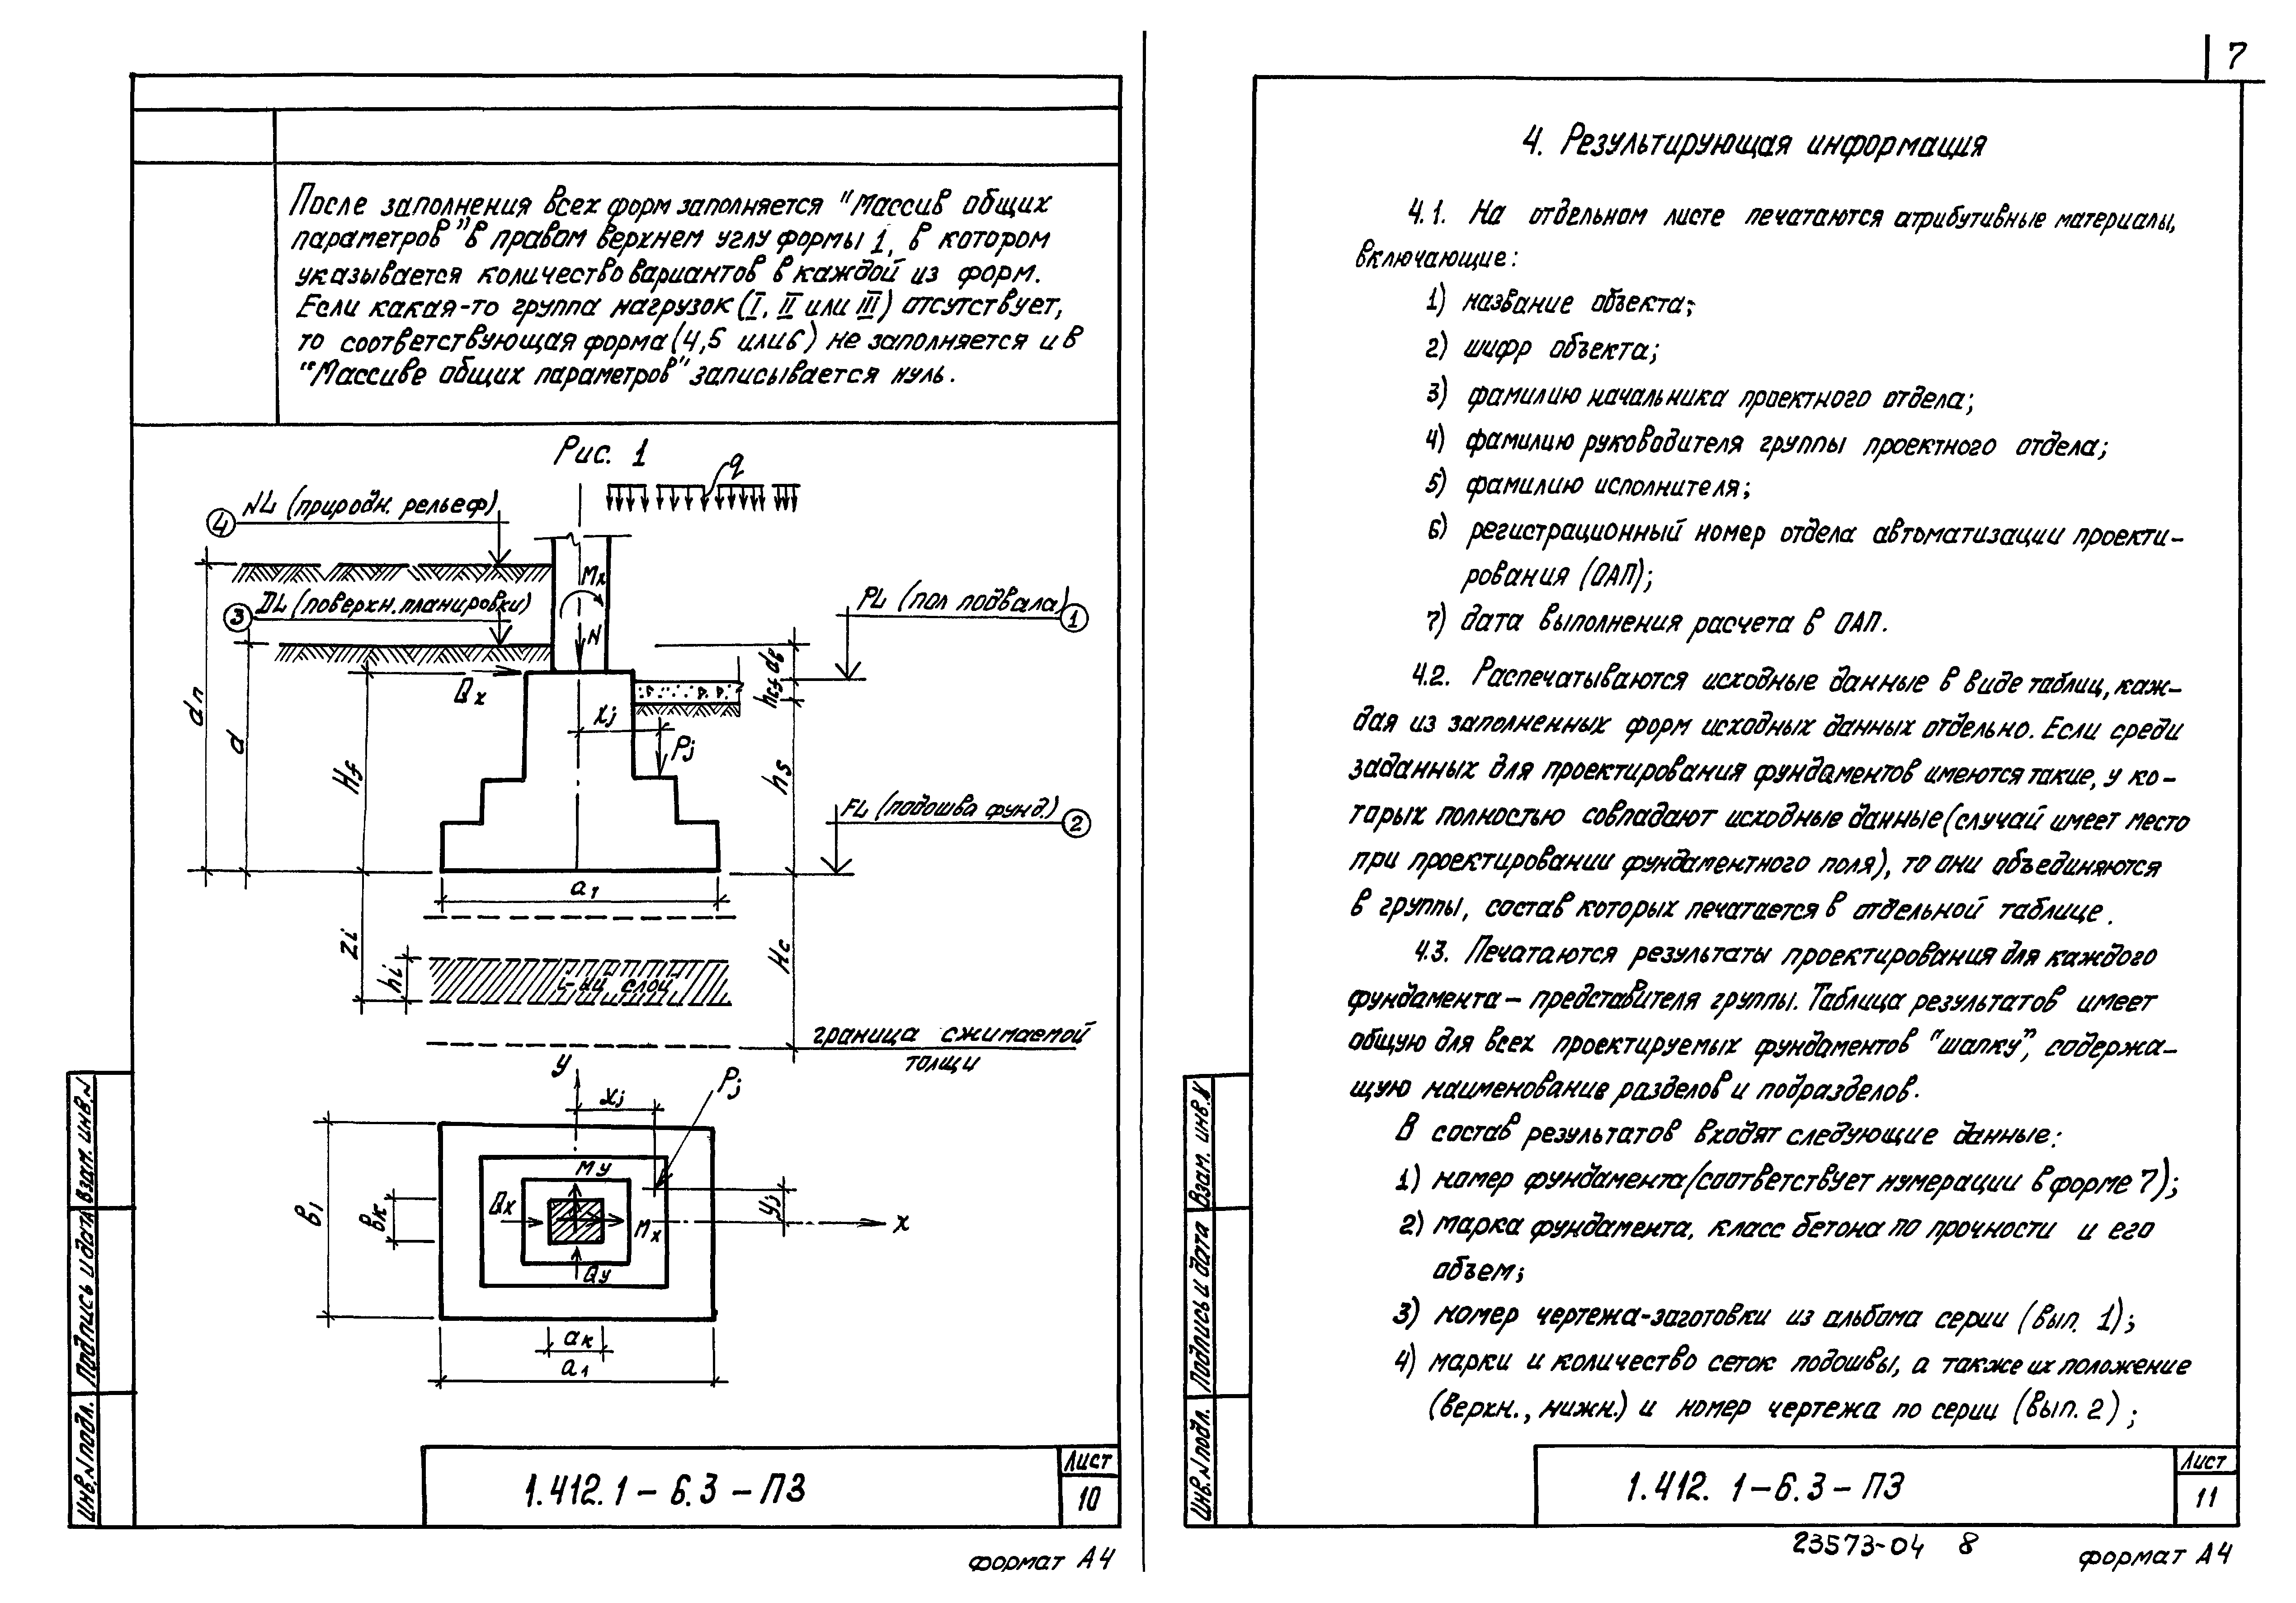 После заполнения всех форм заполняется "Массив общих
параметров" в правом верхнем углу формы 1, в котором
указывается количество вариантов в каждой из форм.
Если какая-то группа нагрузок (I, II или III) отсутствует,
то соответствующая форма (4,5 или 6) не заполняется и в
"Массиве общих параметров" записывается нуль.
Рис. 1
q
NL (природн. рельеф)
4
Mx
DL (поверхн. планировки)
3
PL (пол подвала)
1
N
dв
hcf
Qx
xj
Pj
dn
d
Hf
hs
FL (подошва фунд.)
2
a1
zi
hi
Hc
i-ый слой
граница сжимаемой
толщи
y
xj
Pj
My
Qx
yj
x
Mx
Qy
в1
вк
aк
a1
Взам. инв.N
Подпись и дата
Инв.N подл.
1.412.1-6.3-ПЗ
Лист
10
формат А4
7
4. Результирующая информация
4.1. На отдельном листе печатаются атрибутивные материалы,
включающие:
1) название объекта;
2) шифр объекта;
3) фамилию начальника проектного отдела;
4) фамилию руководителя группы проектного отдела;
5) фамилию исполнителя;
6) регистрационный номер отдела автоматизации проекти-
рования (ОАП);
7) дата выполнения расчета в ОАП.
4.2. Распечатываются исходные данные в виде таблиц, каж-
дая из заполненных форм исходных данных отдельно. Если среди
заданных для проектирования фундаментов имеются такие, у ко-
торых полностью совпадают исходные данные (случай имеет место
при проектировании фундаментного поля), то они объединяются
в группы, состав которых печатается в отдельной таблице.
4.3. Печатаются результаты проектирования для каждого
фундамента - представителя группы. Таблица результатов имеет
общую для всех проектируемых фундаментов "шапку", содержа-
щую наименование разделов и подразделов.
В состав результатов входят следующие данные:
1) номер фундамента (соответствует нумерации в форме 7);
2) марка фундамента, класс бетона по прочности и его
объем;
3) номер чертежа-заготовки из альбома серии (вып. 1);
4) марки и количество сеток подошвы, а также их положение
(верхн., нижн.) и номер чертежа по серии (вып. 2);
Взам. инв.N
Подпись и дата
Инв.N подл.
1.412. 1-6.3-ПЗ
Лист
11
23573-04 8
формат А4